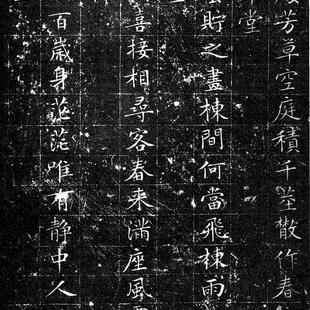 芳草空庭積千莖散作春
堂
貯之畫棟間何當飛棟雨
喜接相尋客春来滿座風
百歲身茫茫唯有静中人